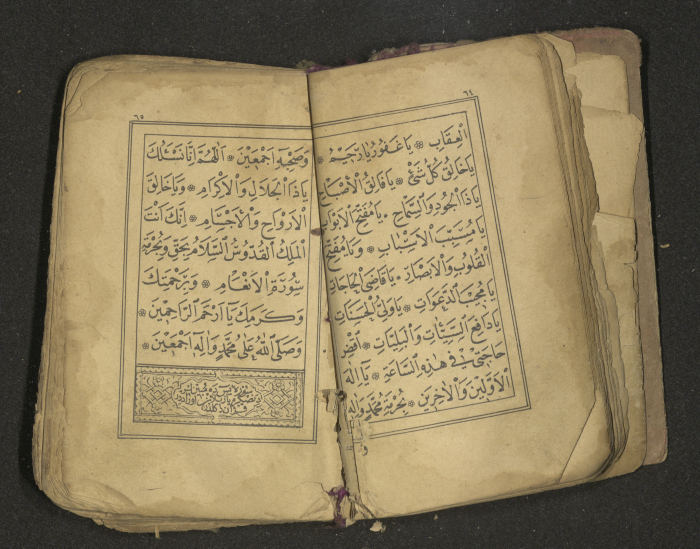 ٦٤
الْعِقَابِ ۞ يَا غَفُورُ يَا رَحِيمُ ۞
يَا خَالِقَ كُلِّ شَيْءٍ ۞ يَا فَالِقَ الْاَصْبَاحِ
يَا ذَا الْجُودِ وَالسَّمَاحِ ۞ يَا مُفَتِّحَ الْاَبْوَابِ
يَا مُسَبِّبَ الْاَسْبَابِ ۞ وَيَا مُفَتِّحَ
الْقُلُوبِ وَالْاَبْصَارِ ۞ يَا قَاضِىَ الْحَاجَاتِ
يَا مُجِيبَ الدَّعَوَاتِ ۞ يَا وَلِىَّ الْحَسَنَاتِ
يَا دَافِعَ السَّيِّئَاتِ وَالْبَلِيَّاتِ ۞ اِقْضِ
حَاجَتِى فِى هٰذِهِ السَّاعَةِ ۞ يَا اِلٰهَ
الْاَوَّلِينَ وَالْاٰخِرِينَ ۞ بِحُرْمَةِ مُحَمَّدٍ وَاٰلِهِ
٦٥
وَصَحْبِهِ اَجْمَعِينَ ۞ اَللّٰهُمَّ اِنَّا نَسْئَلُكَ
يَا ذَا الْجَلَالِ وَالْاِكْرَامِ ۞ وَيَا خَالِقَ
الْاَرْوَاحِ وَالْاَجْسَامِ ۞ اِنَّكَ اَنْتَ
الْمَلِكُ الْقُدُّوسُ السَّلَامُ بِحَقِّ وَبِحُرْمَةِ
سُورَةِ الْاَنْعَامِ ۞ وَبِرَحْمَتِكَ
وَكَرَمِكَ يَا اَرْحَمَ الرَّاحِمِينَ ۞
وَصَلَّى اللّٰهُ عَلٰى مُحَمَّدٍ وَاٰلِهِ اَجْمَعِينَ ۞